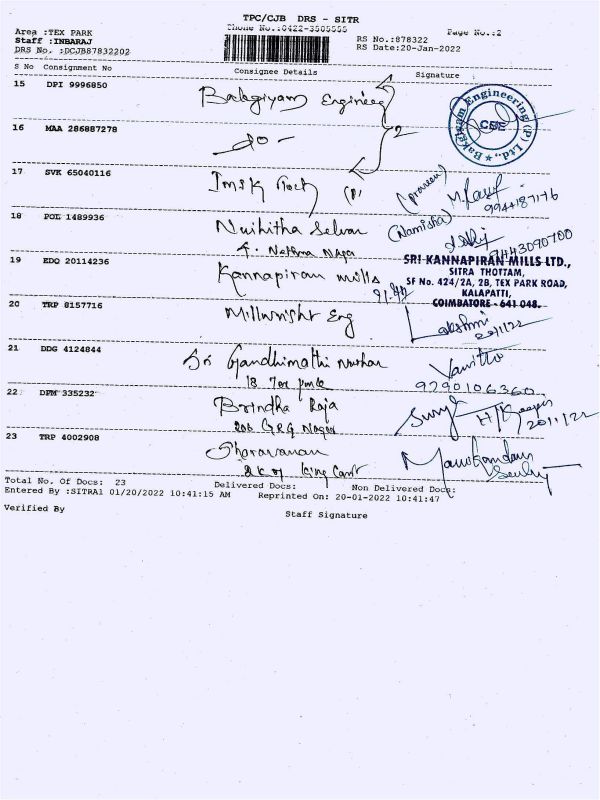 TPC/CJB DRS - SITR
Phone No.:0422-3505555
Area :TEX PARK
RS No.:878322
Page No.:2
Staff :INBARAJ
RS Date:20-Jan-2022
DRS No. :DCJB87832202
S No Consignment No Consignee Details Signature
15 DPI 9996850 Bakgiyam Engineeg
Bakgiyam Engineering (P) Ltd.,
CBE
16 MAA 286887278 - do -
2
17 SVK 65040116
(praveen)
9944187176
18 POL 1489936 Selvan
(Namisha)
9443090700
19 EDQ 20114236 Kannapiran mills
SRI KANNAPIRAN MILLS LTD.,
SITRA THOTTAM,
SF No. 424/2A, 2B, TEX PARK ROAD,
KALAPATTI,
COIMBATORE - 641 048.
20 TRP 8157716 Millwright Eng
Lakshmi
20/1/22
21 DDG 4124844 Sri Gandhimathi
18 Tex park
9290106360
22 DPM 335232 Brindha Raja
206 G.R.G. Nagar
20/1/22
23 TRP 4002908 Sharavanan
Manikandan
Total No. Of Docs: 23 Delivered Docs: Non Delivered Docs:
Entered By :SITRA1 01/20/2022 10:41:15 AM Reprinted On: 20-01-2022 10:41:47
Verified By
Staff Signature